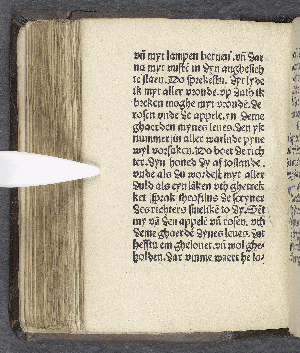 vñ myt lampen bernen. vñ dar
na myt vusté in dyn anghesich
te slaen. Do sprekestu. dyt lyde
ik myt aller vroude. vp dath ik
breken moghe myt vroude. de
rosen unde de appele. in deme
gharden mynes leues. den yk
nummer in aller warlude pyne
wyl vorsaken. Do boet de rich
ter. dyn houed dy af toslande.
vnde als du wordest myt aller
duld als eyn laken vth gherek
ket sprak theofilus de scryuer
des richters spotlike to dy. Sét
my vã den appelé vñ rosen. vth
deme gharde dynes leues. dat
hefstu em ghelouet. vñ wol ghe
holden. dar vmme waert he lo